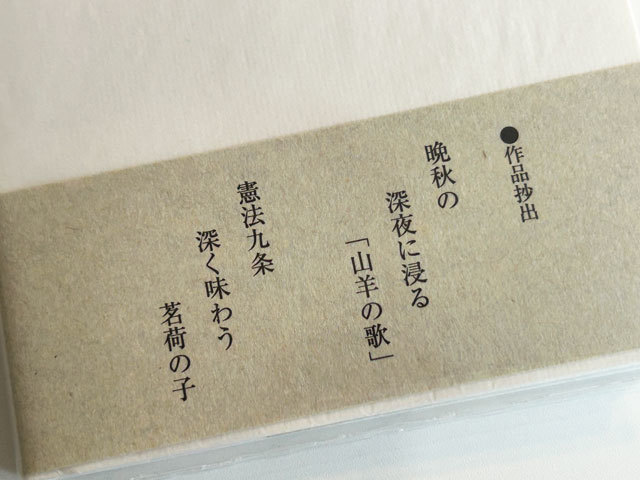 ●作品抄出
晩秋の
深夜に浸る
「山羊の歌」
憲法九条
深く味わう
茗荷の子